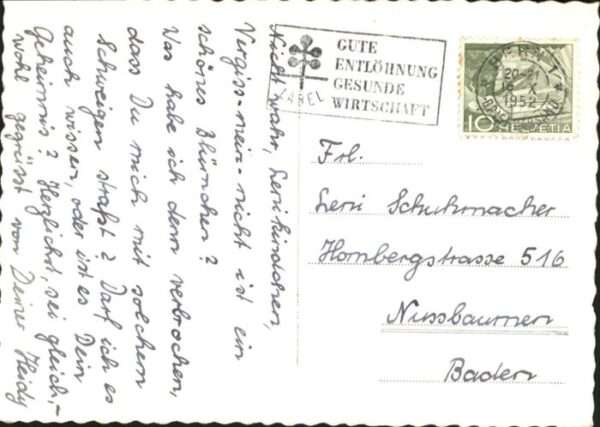 Nicht wahr, Leri kindchen,
Vergiss-mein-nicht ist ein
schönes Blümchen?
Was habe ich denn verbrochen,
dass Du mich mit solchem
Schweigen strafst? Darf ich es
auch wissen, oder ist es Dein
Geheimnis? Herzlichst, sei gleich-
wohl gegrüsst von Deiner Heidy
GUTE
ENTLÖHNUNG
GESUNDE
WIRTSCHAFT
LABEL
20-21
X
1952
10 HELVETIA
Frl.
Leri Schuhmacher
Hombergstrasse 516
Nussbaumen
Baden